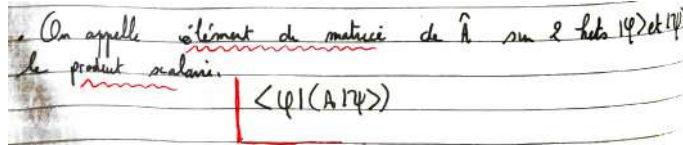 . On appelle élément de matrice de Â sur 2 kets |φ> et |ψ>
le produit scalaire.
<φ|(A|ψ>)